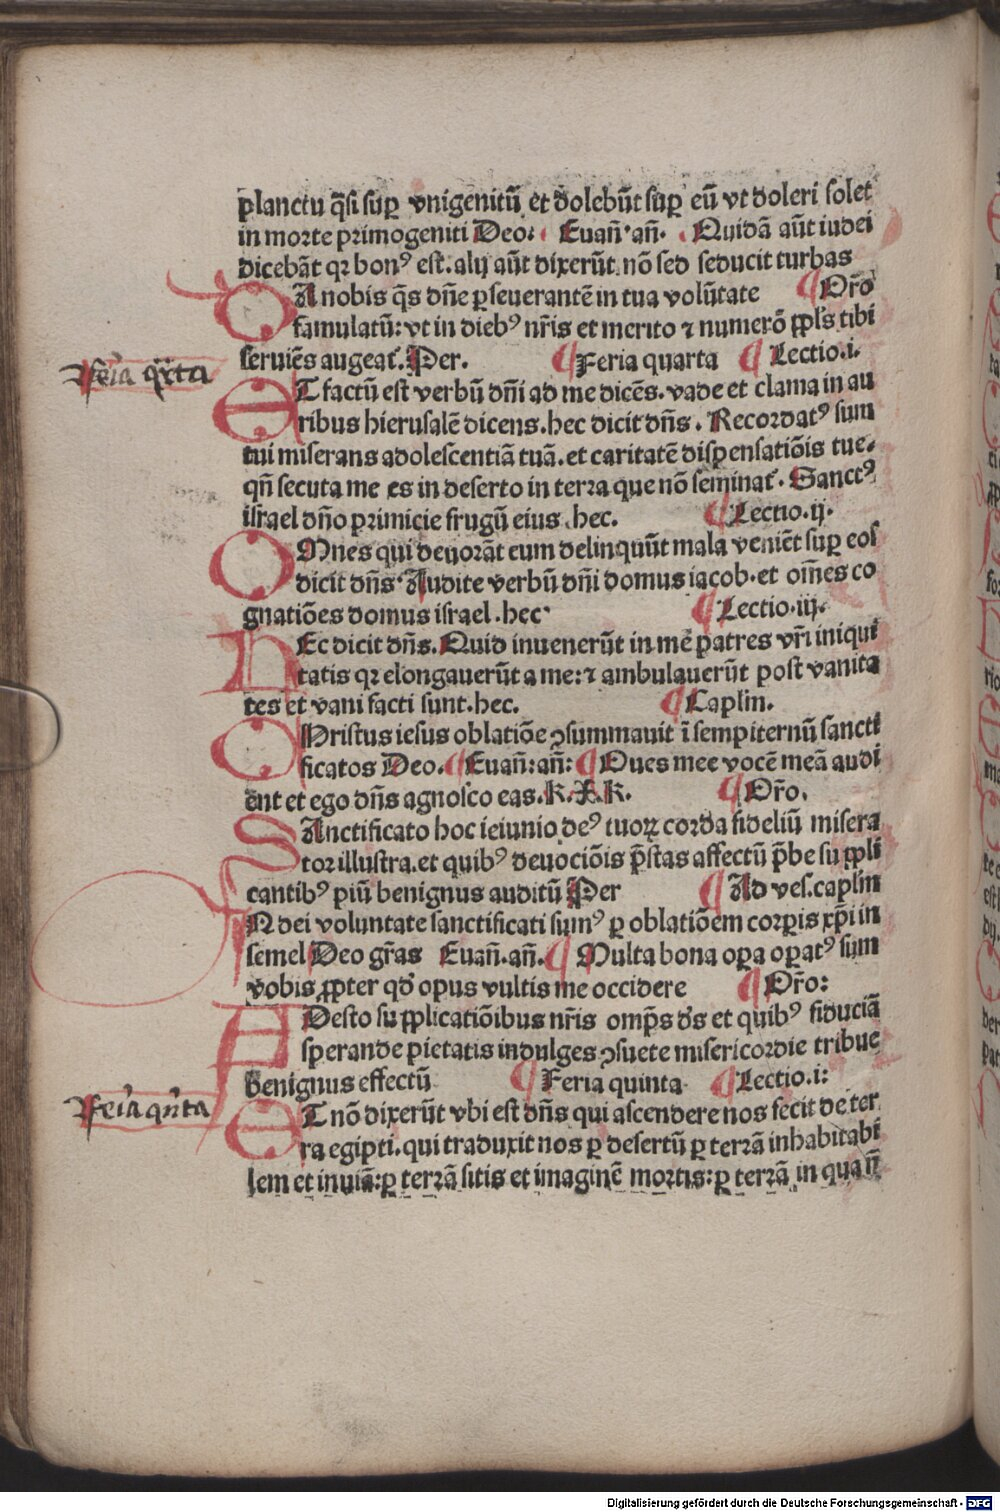 planctu q̄si sup̲ vnigenitū et dolebūt sup̲ eū vt doleri solet
in morte primogeniti Deo: Euan̄·an̄. Quidā aūt iudei
dicebāt qꝛ bonꝰ est. alij aūt dixerūt nō sed seducit turbas
DA nobis q̄s dn̄e ꝑseuerantē in tua volūtate Or̄o
famulatū: vt in diebꝰ nr̄is et merito ⁊ numerō ꝓpl's tibi
seruiēs augeat᷑. Per. Feria quarta Lectio.i.
feria q̈rta
ET factū est verbū dn̄i ad me dicēs. vade et clama in au
ribus hierusalē dicens. hec dicit dn̄s. Recordatꝰ sum
tui miserans adolescentiā tuā. et caritatē dispensatiōis tue.
qn̄ secuta me es in deserto in terra que nō seminat᷑. Sanctꝰ
israel dn̄o primicie frugū eius .hec. Lectio.ij.
OMnes qui deuorāt eum delinquūt mala veniēt sup̲ eos
dicit dn̄s. Audite verbū dn̄i domus iacob. et om̄es co
gnatiōes domus israel .hec. Lectio.iij.
HEc dicit dn̄s. Quid inuenerūt in mē patres vr̄i iniqui
tatis qꝛ elongauerūt a me: ⁊ ambulauerūt post vanita
tes et vani facti sunt. hec. Caplm̄.
CHristus iesus oblatiōe ꝯsummauit ī sempiternū sancti
ficatos Deo. Euan̄: an̄: Oues mee vocē meā audi
ent et ego dn̄s agnosco eas. K. X. K. Or̄o.
SAnctificato hoc ieiunio deꝰ tuoꝝ corda fideliū misera
tor illustra. et quibꝰ deuociōis p̄stas affectū p̄be su ꝓpli
cantibꝰ piū benignus auditū Per Ad ves. caplm̄
IN dei voluntate sanctificati sumꝰ ꝑ oblatiōem corꝑis xp̄i in
semel Deo gr̄as Euan̄. an̄. Multa bona oꝑa oꝑatꝰ sum
vobis ꝓpter qd' opus vultis me occidere Or̄o:
ADesto su ꝓplicatiōibus nr̄is omp̄s d's et quibꝰ fiduciā
sperande pietatis indulges ꝯsuete misericordie tribue
benignus effectū Feria quinta Lectio.i:
feria qn̄ta
ET nō dixerūt vbi est dn̄s qui ascendere nos fecit de ter
ra egipti. qui traduxit nos ꝑ desertū ꝑ terrā inhabitabi
lem et inuiā: ꝑ terrā sitis et imaginē mortis: ꝑ terrā in qua n̄
Digitalisierung gefördert durch die Deutsche Forschungsgemeinschaft - DFG